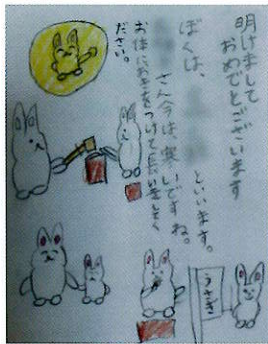 明けまして
おめでとございます
ぼくは、
といいます。
さん今は寒いですね。
お体にお気をつけて長いきしてく
ださい。
うさぎ